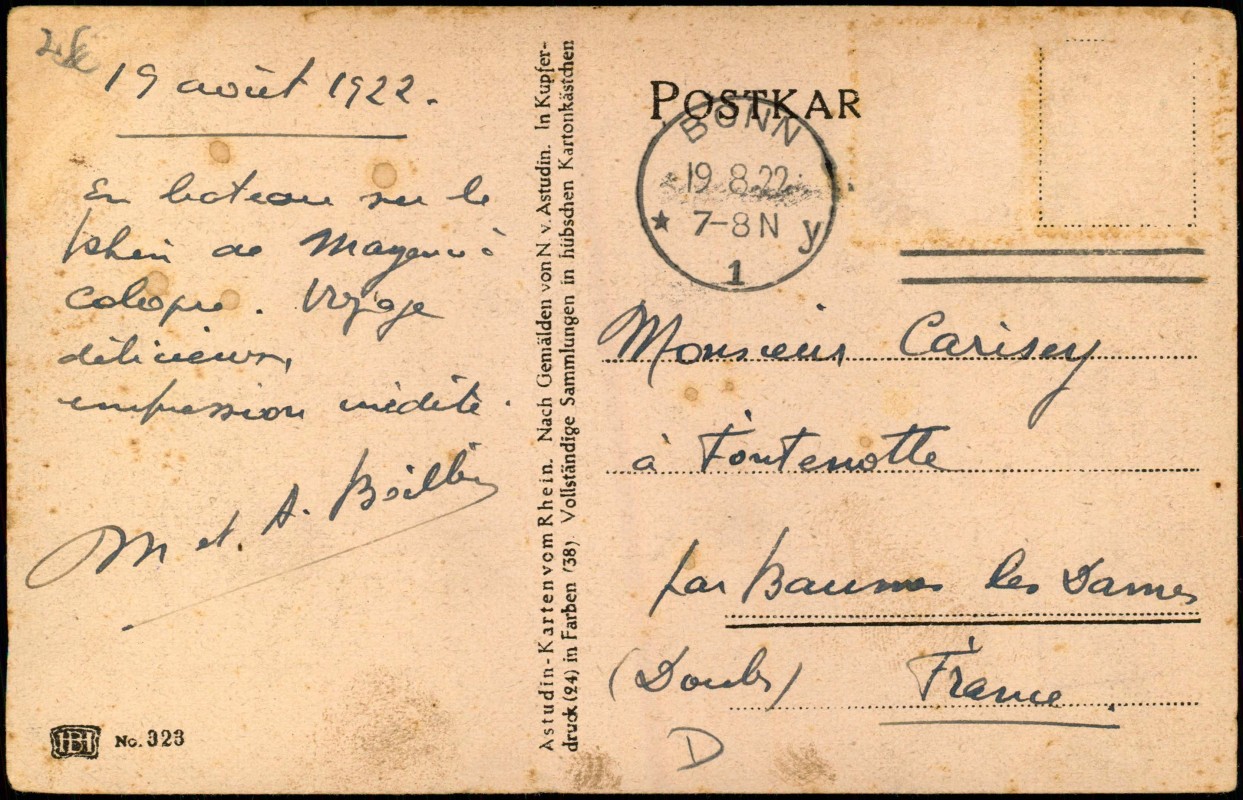 19 août 1922.
En bateau sur le
Rhin de Mayence à
Cologne. Voyage
délicieux,
impression inédite.
M et A.
Astudin-Karten vom Rhein. Nach Gemälden von N v. Astudin. In Kupfer-
druck (24) in Farben (38). Vollständige Sammlungen in hübschen Kartonkästchen
POSTKAR
BONN
19.8.22.
7-8 N
y
1
Monsieur Carisey
à Fontenotte
par Baumes les Dames
(Doubs) France
D
HBH No. 323